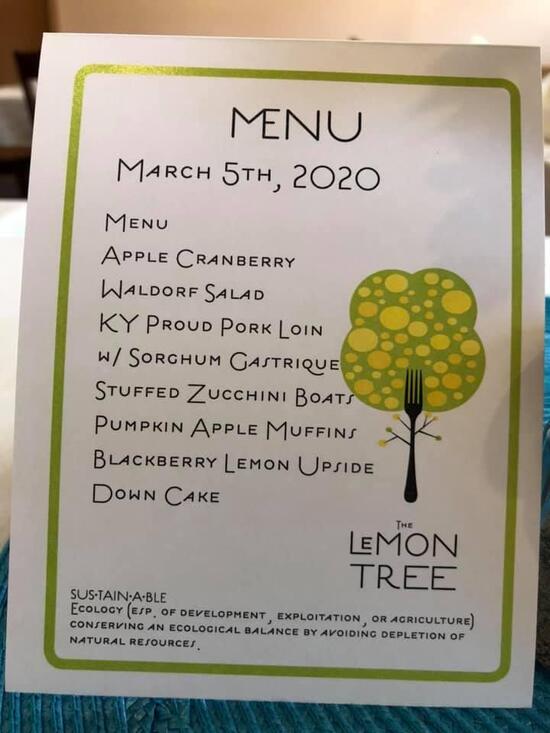 MENU
MARCH 5TH, 2020
MENU
APPLE CRANBERRY
WALDORF SALAD
KY PROUD PORK LOIN
W/ SORGHUM GASTRIQUE
STUFFED ZUCCHINI BOATS
PUMPKIN APPLE MUFFINS
BLACKBERRY LEMON UPSIDE
DOWN CAKE
THE
LEMON
TREE
SUS·TAIN·A·BLE
ECOLOGY (ESP. OF DEVELOPMENT, EXPLOITATION, OR AGRICULTURE)
CONSERVING AN ECOLOGICAL BALANCE BY AVOIDING DEPLETION OF
NATURAL RESOURCES.